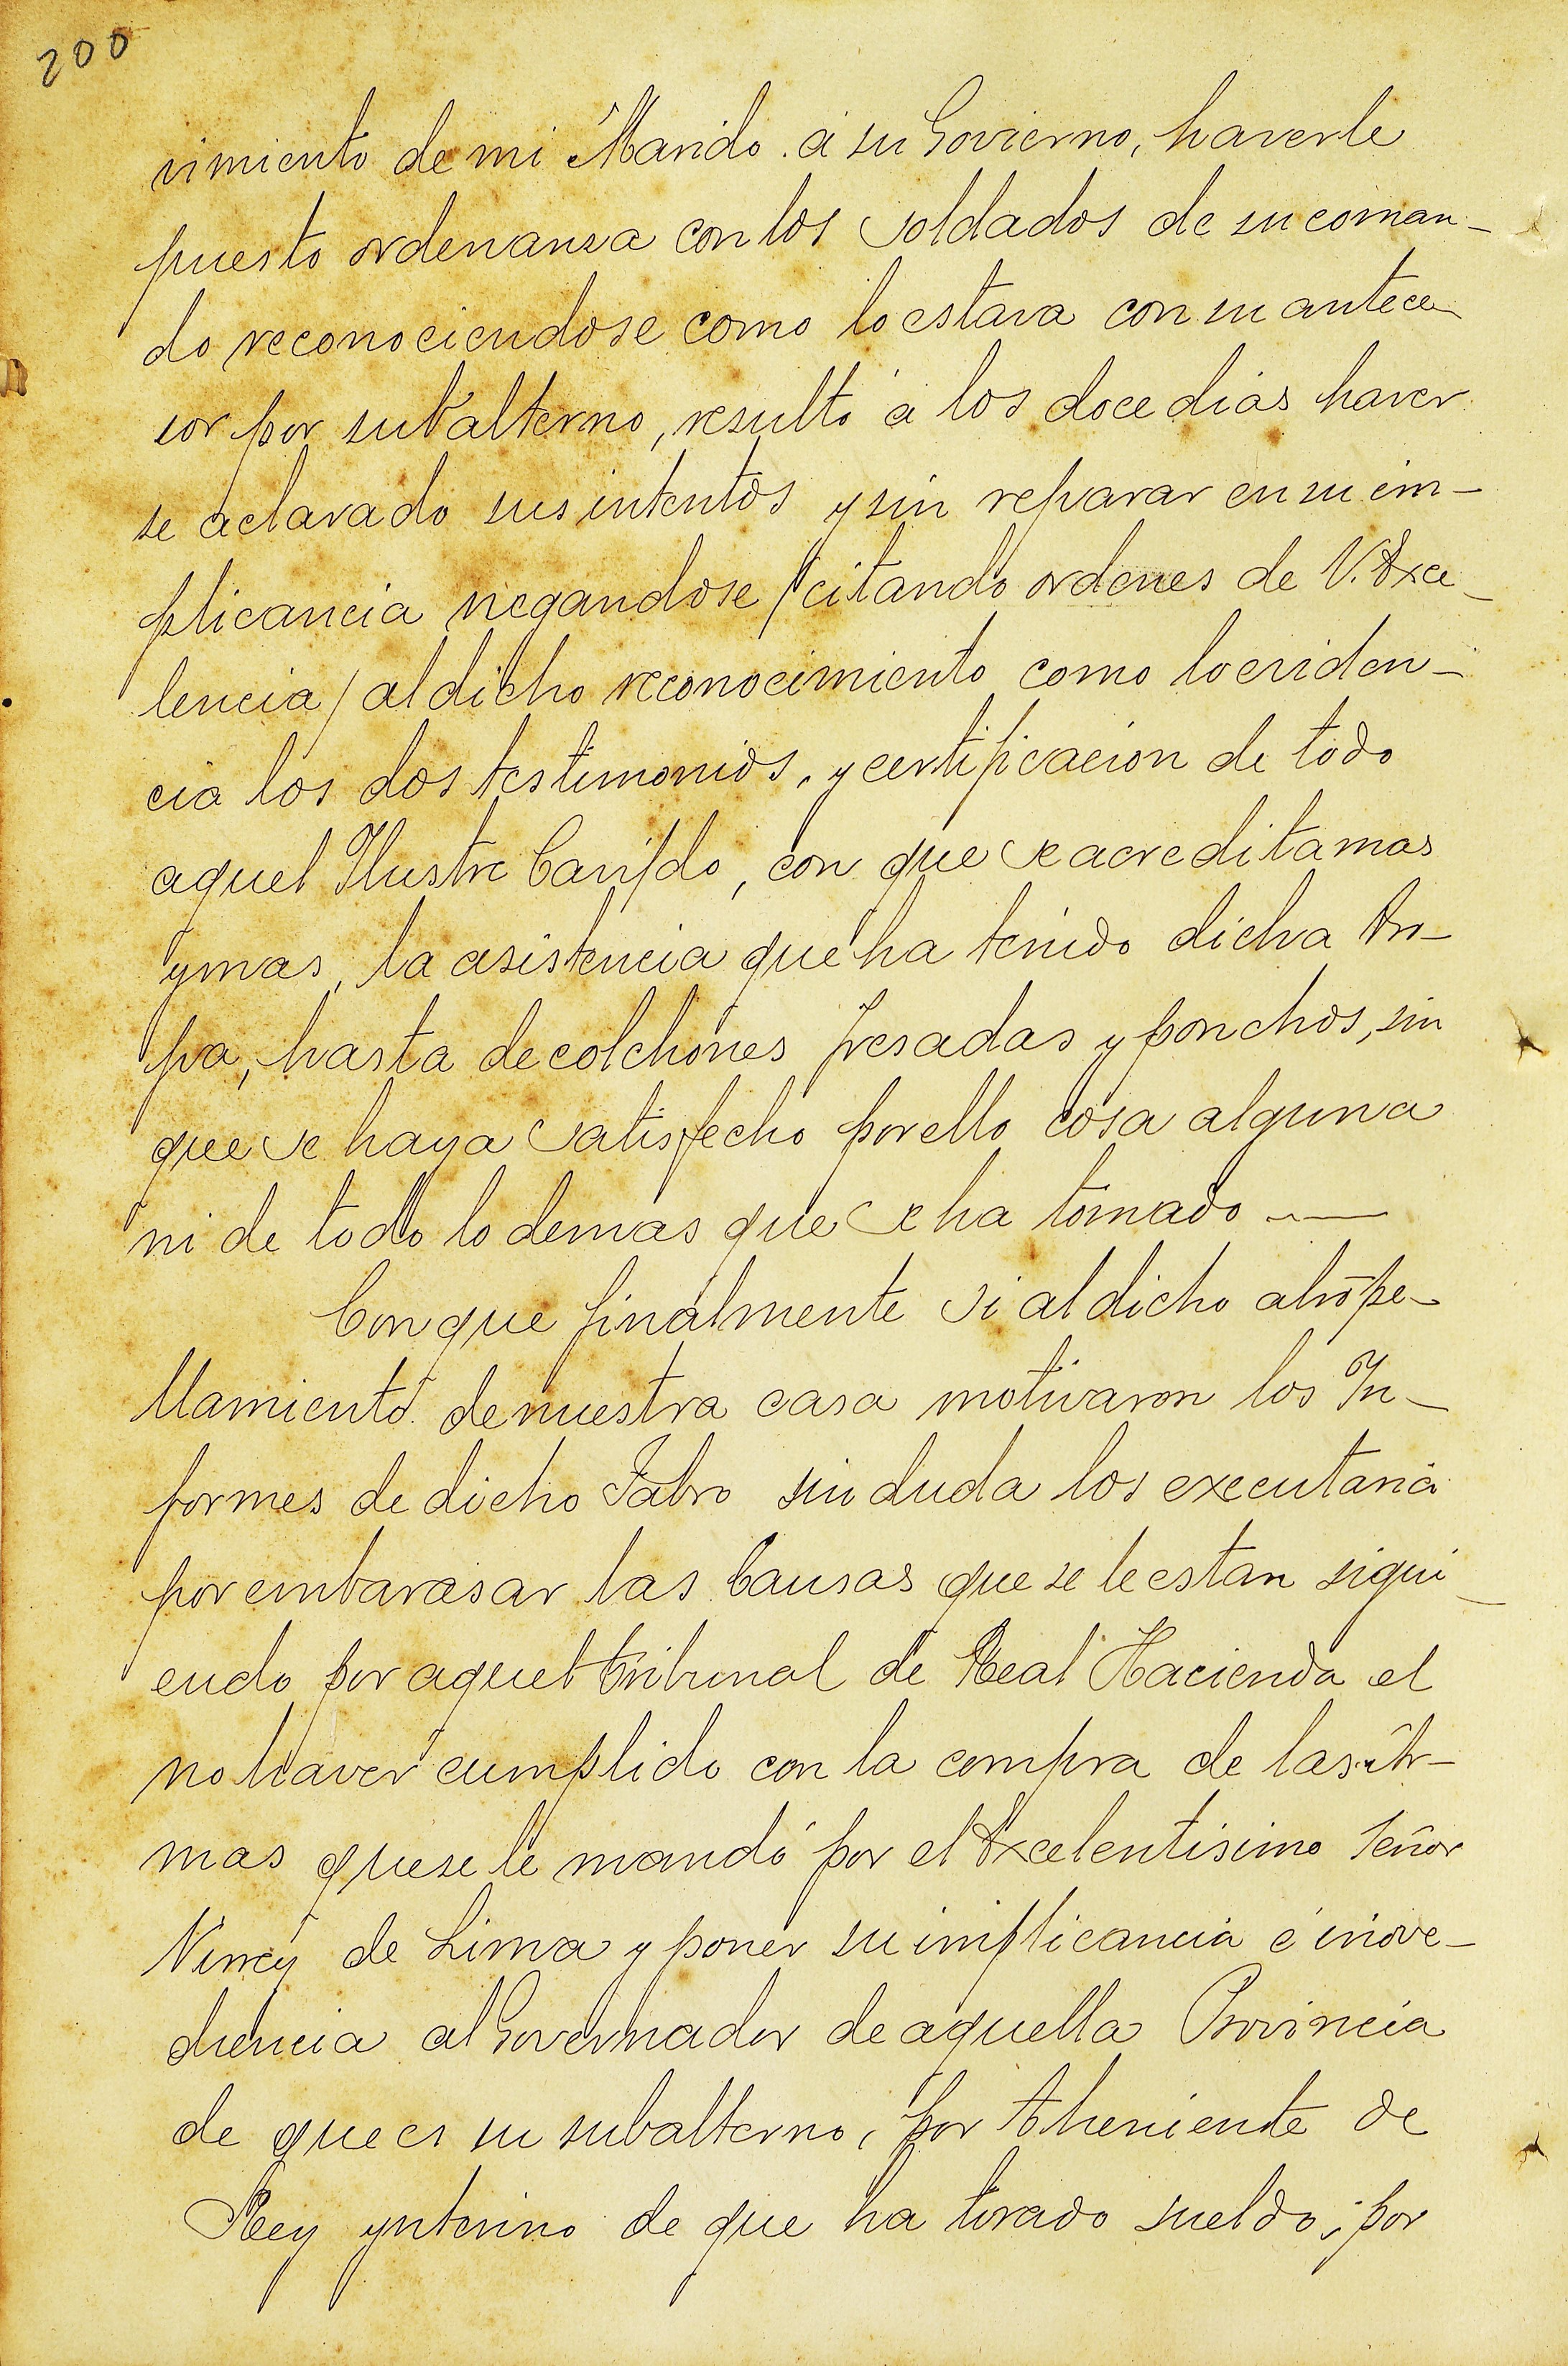 200
vimiento de mi Marido. á su Govierno, haverle
puesto ordenansa con los soldados de su coman-
do reconociendose como lo estava con su antece-
sor por subalterno, resultó á los doce dias haver
se aclarado sus intentos y sin reparar en su im-
plicancia negandose /citando ordenes de V. Exce-
lencia/ al dicho reconocimiento como lo eviden-
cia los dos testimonios, y certificacion de todo
aquel Ilustre Cavildo, con que se acredita mas
y mas, la asistencia que ha tenido dicha tro-
pa, hasta de colchones fresadas y ponchos, sin
que se haya satisfecho por ello cosa alguna
ni de todo lo demas que se ha tomado ——
Con que finalmente si al dicho atrope-
llamiento de nuestra casa motivaron los In-
formes de dicho Fabro sin duda los executaria
por embarasar las Causas que se le estan sigui-
endo por aquel tribunal de Real Hacienda el
no haver cumplido con la compra de las Ar-
mas que se le mandó por el Excelentisimo Señor
Virrey de Lima y poner su implicancia é inove-
diencia al Governador de aquella Provincia
de que es su subalterno, por theniente de
Rey ynterino de que ha tirado sueldo; por